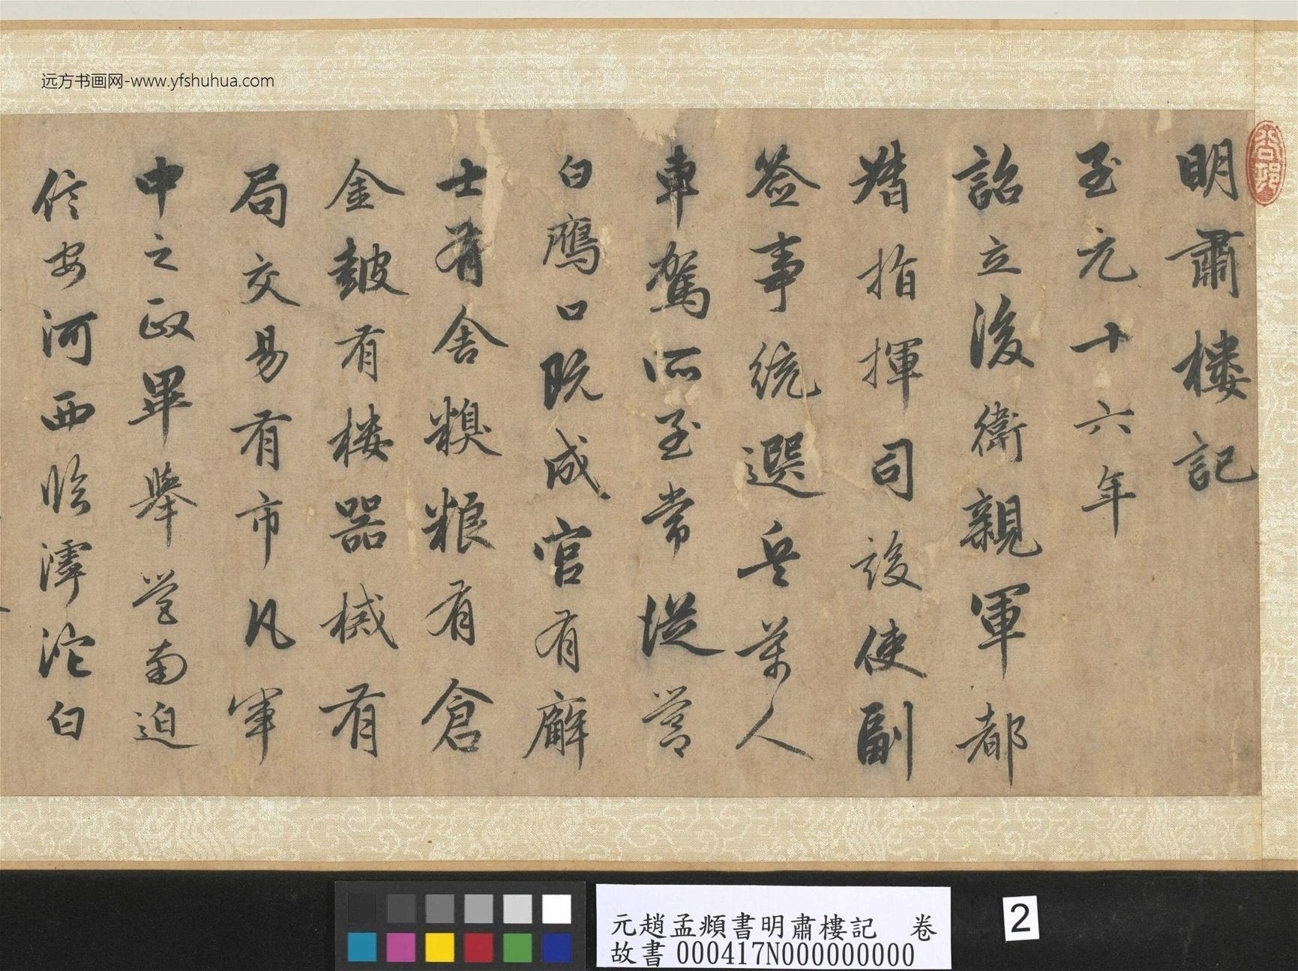 远方书画网-www.yfshuhua.com
明肅楼記
至元十六年
詔立後衛親軍都
指揮司設使副
簽事統選兵萬人
車駕所至常從営
白鴈口既成官有廨
士有舍糗粮有倉
金鼓有楼器械有
局交易有市凡軍
中之政畢舉営南迫
信安河西临滹沱白
元趙孟頫書明肅樓記 卷
故書000417N000000000
2